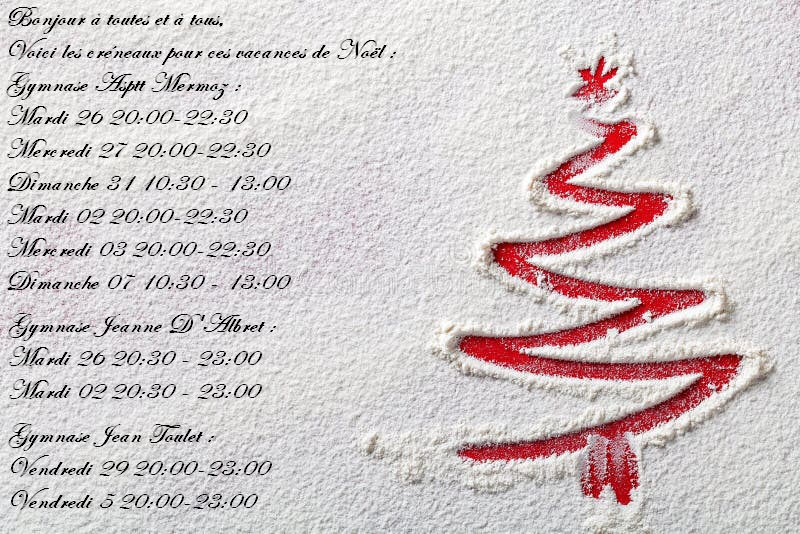 Bonjour à toutes et à tous,
Voici les créneaux pour ces vacances de Noël :
Gymnase Asptt Mermoz :
Mardi 26 20:00-22:30
Mercredi 27 20:00-22:30
Dimanche 31 10:30 - 13:00
Mardi 02 20:00-22:30
Mercredi 03 20:00-22:30
Dimanche 07 10:30 - 13:00
Gymnase Jeanne D'Albret :
Mardi 26 20:30 - 23:00
Mardi 02 20:30 - 23:00
Gymnase Jean Toulet :
Vendredi 29 20:00-23:00
Vendredi 5 20:00-23:00